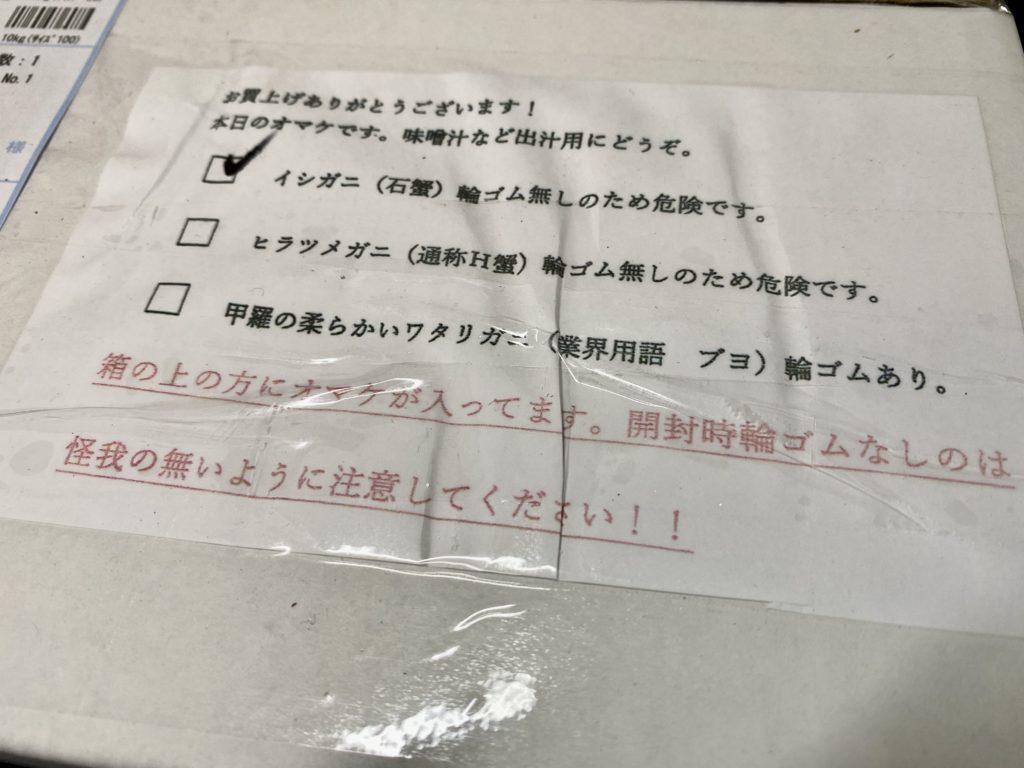 10kg(ｻｲｽﾞ100)
数：1
No. 1
様
お買上げありがとうございます！
本日のオマケです。味噌汁など出汁用にどうぞ。
イシガニ（石蟹）輪ゴム無しのため危険です。
ヒラツメガニ（通称Ｈ蟹）輪ゴム無しのため危険です。
甲羅の柔らかいワタリガニ（業界用語　ブヨ）輪ゴムあり。
箱の上の方にオマケが入ってます。開封時輪ゴムなしのは
怪我の無いように注意してください！！